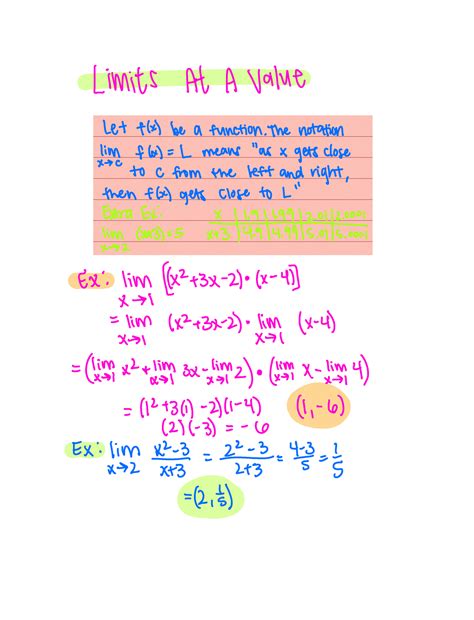 Limits At A Value
Let f(x) be a function. The notation
lim x→c f(x) = L means "as x gets close
to c from the left and right,
then f(x) gets close to L"
Extra Ex: x | 1.9 | 1.99 | 2.01 | 2.0001
lim x→2 (x+3)=5 x+3 | 4.9 | 4.99 | 5.01 | 5.0001
Ex: lim x→1 [(x²+3x-2)•(x-4)]
= lim x→1 (x²+3x-2)• lim x→1 (x-4)
=(lim x→1 x²+lim x→1 3x-lim x→1 2)•(lim x→1 x-lim x→1 4)
= (1²+3(1)-2)(1-4) (1,-6)
(2)(-3) = -6
Ex: lim x→2 x²-3/x+3 = 2²-3/2+3 = 4-3/5 = 1/5
=(2,1/5)